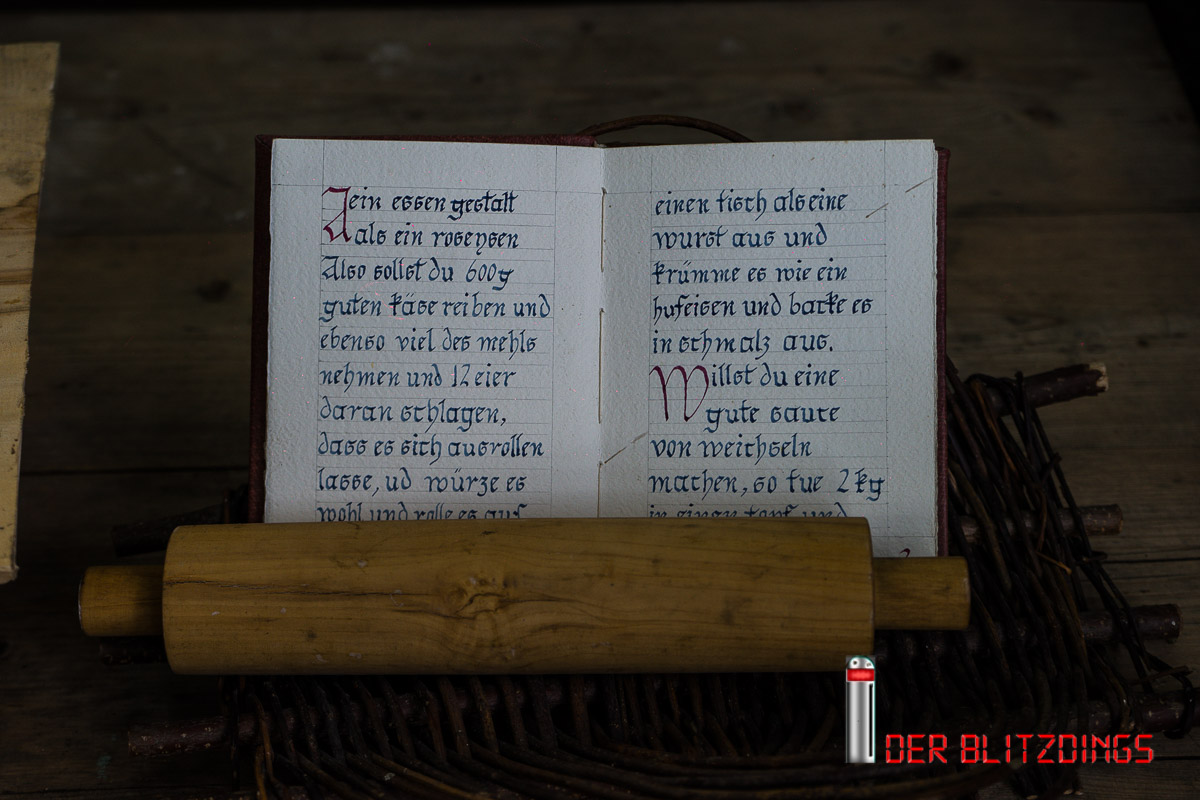 Aein essen gestalt
als ein roseysen
Also sollst du 600g
guten käse reiben und
ebenso viel des mehls
nehmen und 12 eier
daran schlagen,
dass es sich ausrollen
lasse, ud würze es
wohl und rolle es auf
einen tisch als eine
wurst aus und
krümme es wie ein
hufeisen und backe es
in schmalz aus.
Willst du eine
gute sauce
von weichseln
machen, so tue 2kg
in einen topf und
DER BLITZDINGS